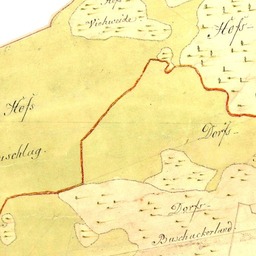 Hofs
Viehweide
Hofs-
Hofs
uschlag.
Dorfs-
Dorfs-
Buschackerland.